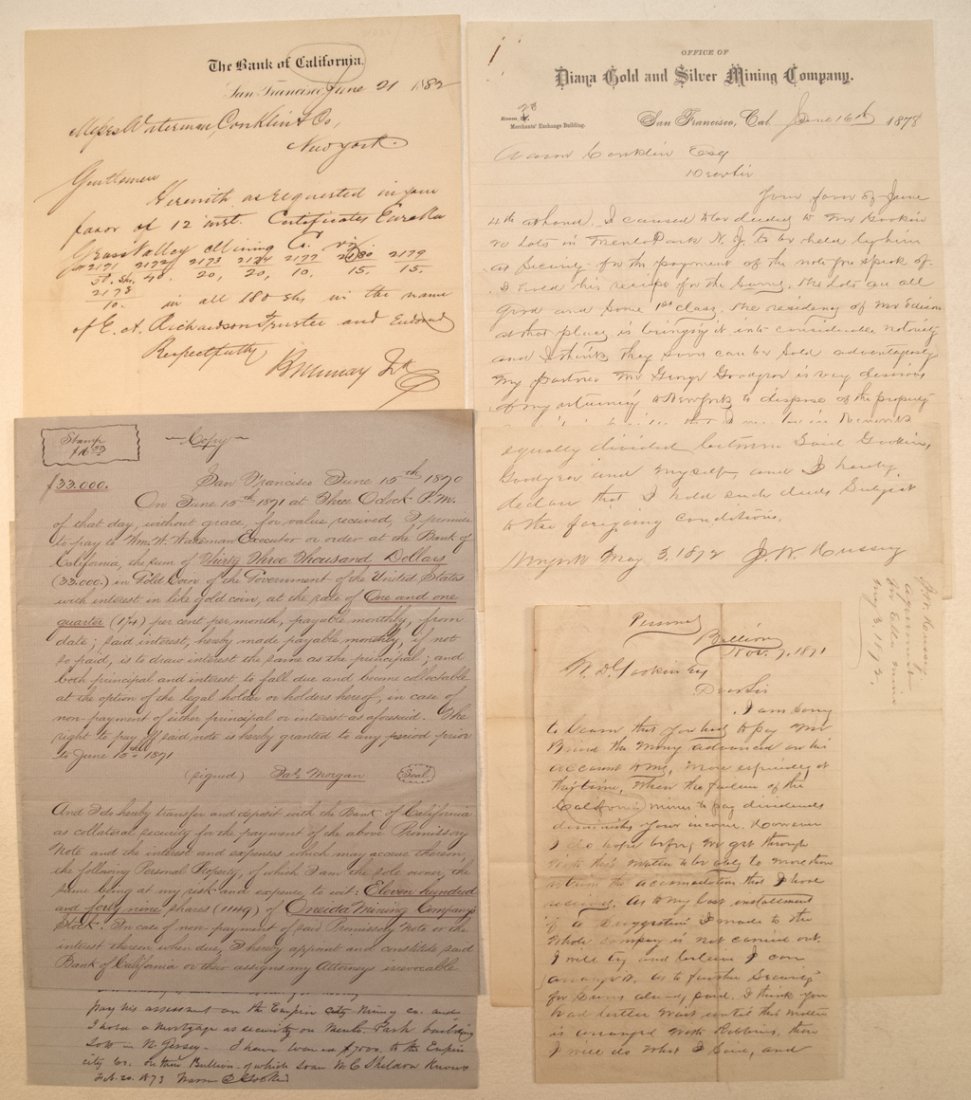 The Bank of California.
San Francisco June 21 1882
Messrs Waterman Conklin & Co,
New York.
Gentlemen
Herewith as requested in your
favor of 12 inst. Certificates Eureka
Grass Valley Mining Co. viz
2171 2172 2173 2174 2177 2180 2179
40. 20, 20, 10. 15. 15.
2178
10. in all 180 shs, in the name
of E. A. Richardson Trustee and Endorsed
Respectfully
B Murray Jr
OFFICE OF
Diana Gold and Silver Mining Company.
Room 28
Merchants' Exchange Building.
San Francisco, Cal June 16th 1878
Conklin Esq
Dear Sir
Your favor of June
4th at hand. I caused to be deeded to Mr
Lots in Menlo Park N. J. to be held by him
as Security for the payment of the note you speak of.
I hold his receipt for the Same. The Lots are all
good and Some 1st class. the residency of Mr Edison
at that place is bringing it into considerable notoriety
and I think they soon can be Sold advantageously
My partner Mr George Goodyear is very desirous
of my returning to New York to dispose of the property
equally divided between Said
Goodyear and myself, and I hereby
declare that I hold such deeds Subject
to the foregoing conditions.
New York May 3, 1872 J. W. Hussey
Hussey
agreement
May 3 1872.
Stamp
$16.50
Copy
San Francisco June 15th 1870
$33.000.
On June 15th 1871 at Three O'clock P.M.
of that day, without grace, for value received, I promise
to pay to Wm. W. Executor or order at the Bank of
California, the sum of Thirty Three Thousand Dollars
(33.000.) in Gold Coin of the Government of the United States
with interest in like gold coin, at the rate of One and one
quarter (1¼) per cent per month, payable monthly, from
date; said interest, hereby made payable monthly, if not
so paid, is to draw interest the same as the principal; and
both principal and interest, to fall due and become collectable
at the option of the legal holder or holders hereof, in case of
non-payment of either principal or interest as aforesaid. The
right to pay off said note is hereby granted to any period prior
to June 15th 1871
(signed) Morgan Seal
And I do hereby transfer and deposit with the Bank of California
as collateral security for the payment of the above Promissory
Note and the interest and expenses which may accrue thereon,
the following Personal Property, of which I am the sole owner, the
same being at my risk and expense, to wit: Eleven hundred
and forty nine shares (1149) of Oneida Mining Company's
Stock. In case of non-payment of said Promissory Note or the
interest thereon when due, I hereby appoint and constitute said
Bank of California or their assigns my Attorneys irrevocable
pay his assessment on the Empire City Mining Co. and
I hold a mortgage as security on Menlo Park building
Lots in N. Jersey. I have loaned $7000 to the Empire
City Co. on their Bullion of which loan W C Sheldon Knows
Feb. 20. 1873
Personal
Bullion
Nov. 7, 1871
W. D. Esq
Dear Sir
I am Sorry
to learn that you had to pay Mr
the Money advanced on his
account to me, more especially at
this time, when the failure of the
California mines to pay dividends
diminishes your income. However
I do hope before we get through
with this matter to be able to more than
return the accommodation that I have
received. As to my last installment
if a Suggestion I made to the
Whole Company is not carried out.
I will try and believe I can
arrange it. As to further Security
for Sums already paid. I think you
had better wait until this matter
is arranged with Robbins, then
I will do what I said, and